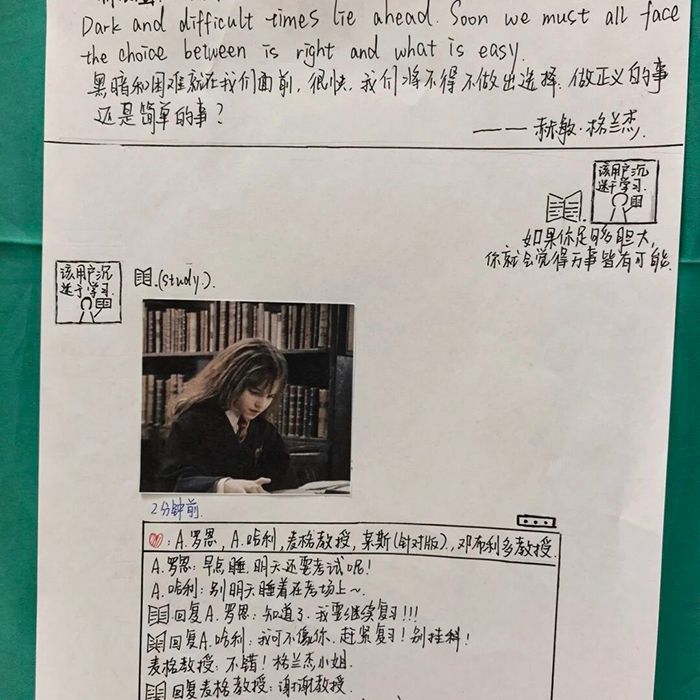 Dark and difficult times lie ahead. Soon we must all face
the choice between is right and what is easy.
黑暗和困难就在我们面前, 很快, 我们将不得不做出选择, 做正义的事
还是简单的事?
——赫敏·格兰杰.
该用户沉
迷于学习.
如果你足够胆大,
你就会觉得万事皆有可能.
该用户沉
迷于学习.
.(study.).
2分钟前.
: A.罗恩, A.哈利, 麦格教授, 某斯(针对版)., 邓布利多教授.
A.罗恩: 早点睡, 明天还要考试呢!
A.哈利: 别明天睡着在考场上~.
回复A.罗恩: 知道了, 我要继续复习!!!
回复A.哈利: 我可不像你, 赶紧复习! 别挂科!
麦格教授: 不错! 格兰杰小姐.
回复麦格教授: 谢谢教授.